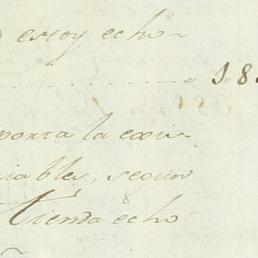 estoy echo
18
porta la exis-
tiables, segun
tienda echo